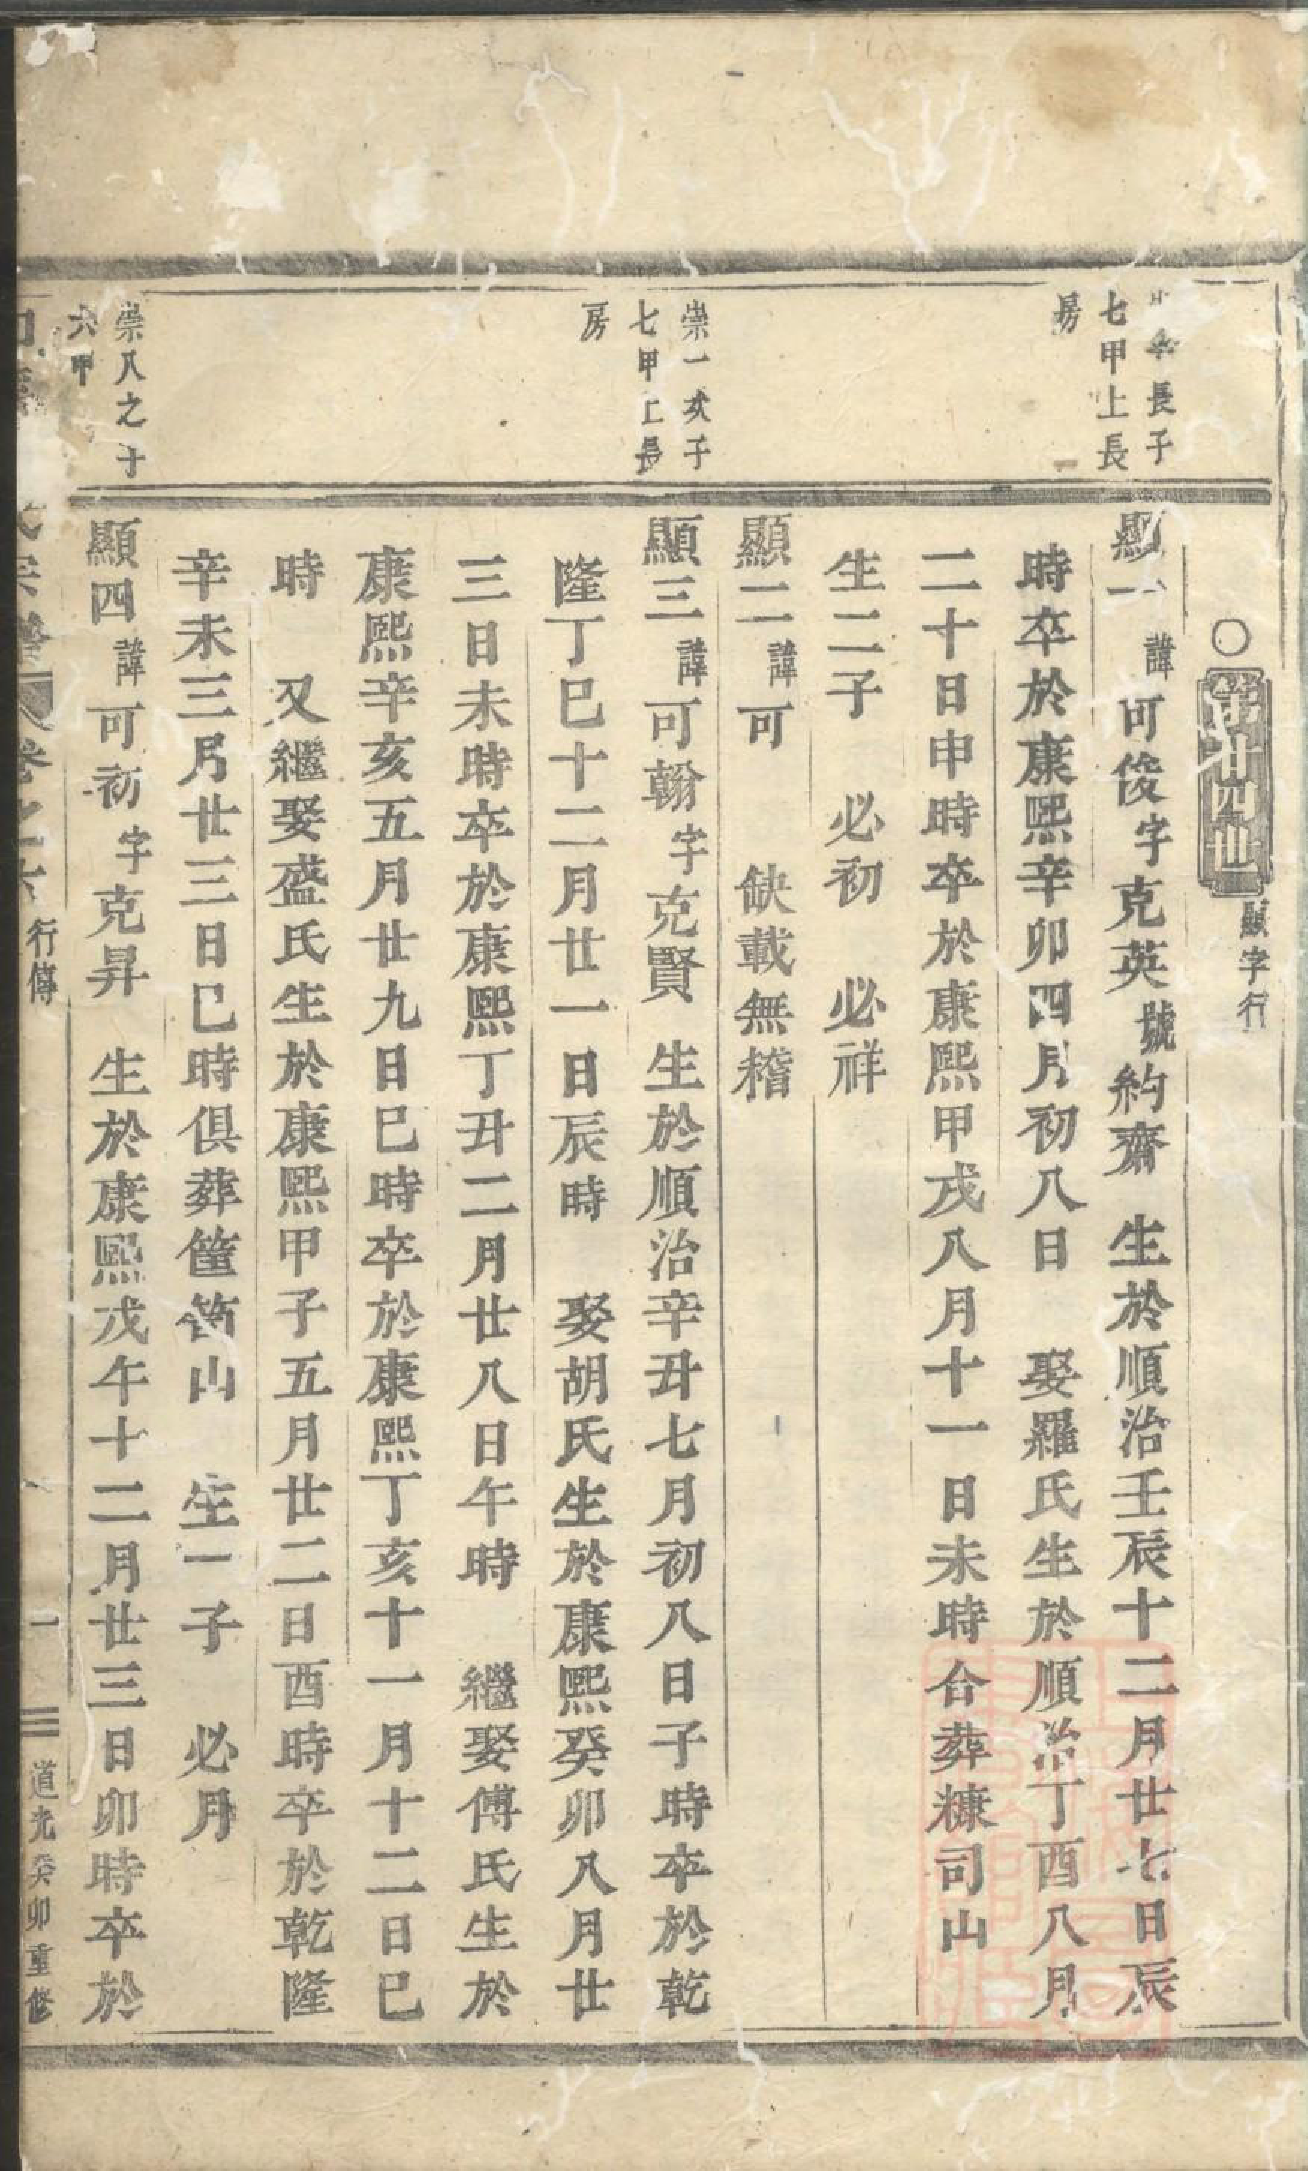 ○第廿四世 顯字行
長子
七甲上長
房
顯一諱可俊字克英號約齋 生於順治壬辰十二月廿七日辰
時卒於康熙辛卯四月初八日 娶羅氏生於順治丁酉八月
二十日申時卒於康熙甲戌八月十一日未時合葬糠司山
生二子 必初 必祥
顯二諱可 缺載無稽
崇一次子
七甲上長
房
顯三諱可翰字克賢 生於順治辛丑七月初八日子時卒於乾
隆丁巳十二月廿一日辰時 娶胡氏生於康熙癸卯八月廿
三日未時卒於康熙丁丑二月廿八日午時 繼娶傅氏生於
康熙辛亥五月廿九日巳時卒於康熙丁亥十一月十二日巳
時 又繼娶盛氏生於康熙甲子五月廿二日酉時卒於乾隆
辛未三月廿三日巳時俱葬筐箵山 生一子 必月
崇八之子
六甲
顯四諱可初字克昇 生於康熙戊午十二月廿三日卯時卒於
氏宗譜 卷之六 行傳 一 道光癸卯重修